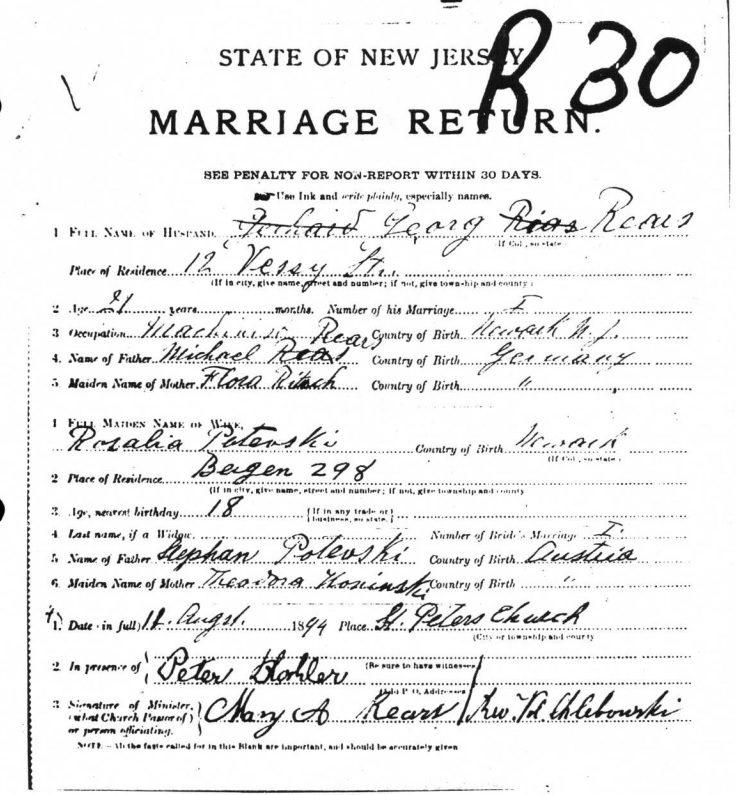 R 30
STATE OF NEW JERSEY
MARRIAGE RETURN.
SEE PENALTY FOR NON-REPORT WITHIN 30 DAYS.
Use Ink and write plainly, especially names.
1 FULL NAME OF HUSBAND Georg Rias Rears
(If Col., so state
Place of Residence 12 Vessy St.
(If in city, give name, street and number; if not, give township and county)
2 Age 21 years months. Number of his Marriage I
3 Occupation Machinist Country of Birth Newark N. J.
Rears
4. Name of Father Michael Reas Country of Birth Germany
5 Maiden Name of Mother Flora Country of Birth "
1 FULL MAIDEN NAME OF WIFE,
Rosalia Potevski Country of Birth Newark
(If Col., so state)
2 Place of Residence Bergen 298
(If in city, give name, street and number; if not, give township and county
3. Age, nearest birthday 18 {If in any trade or business, so state.}
4. Last name, if a Widow Number of Bride's Marriage I.
5 Name of Father Stephan Potevski Country of Birth Austria
6. Maiden Name of Mother Theodora Country of Birth "
1. Date (in full) Augst. 1894 Place St. Peters Church
(City or township and county
2 In presence of Peter (Be sure to have witnesses
(Add P. O. Addresses
3 Signature of Minister, (what Church Pastor of) or person officiating. Mary A Rears Rev. Chlebowski
NOTE.—All the facts called for in this Blank are important, and should be accurately given